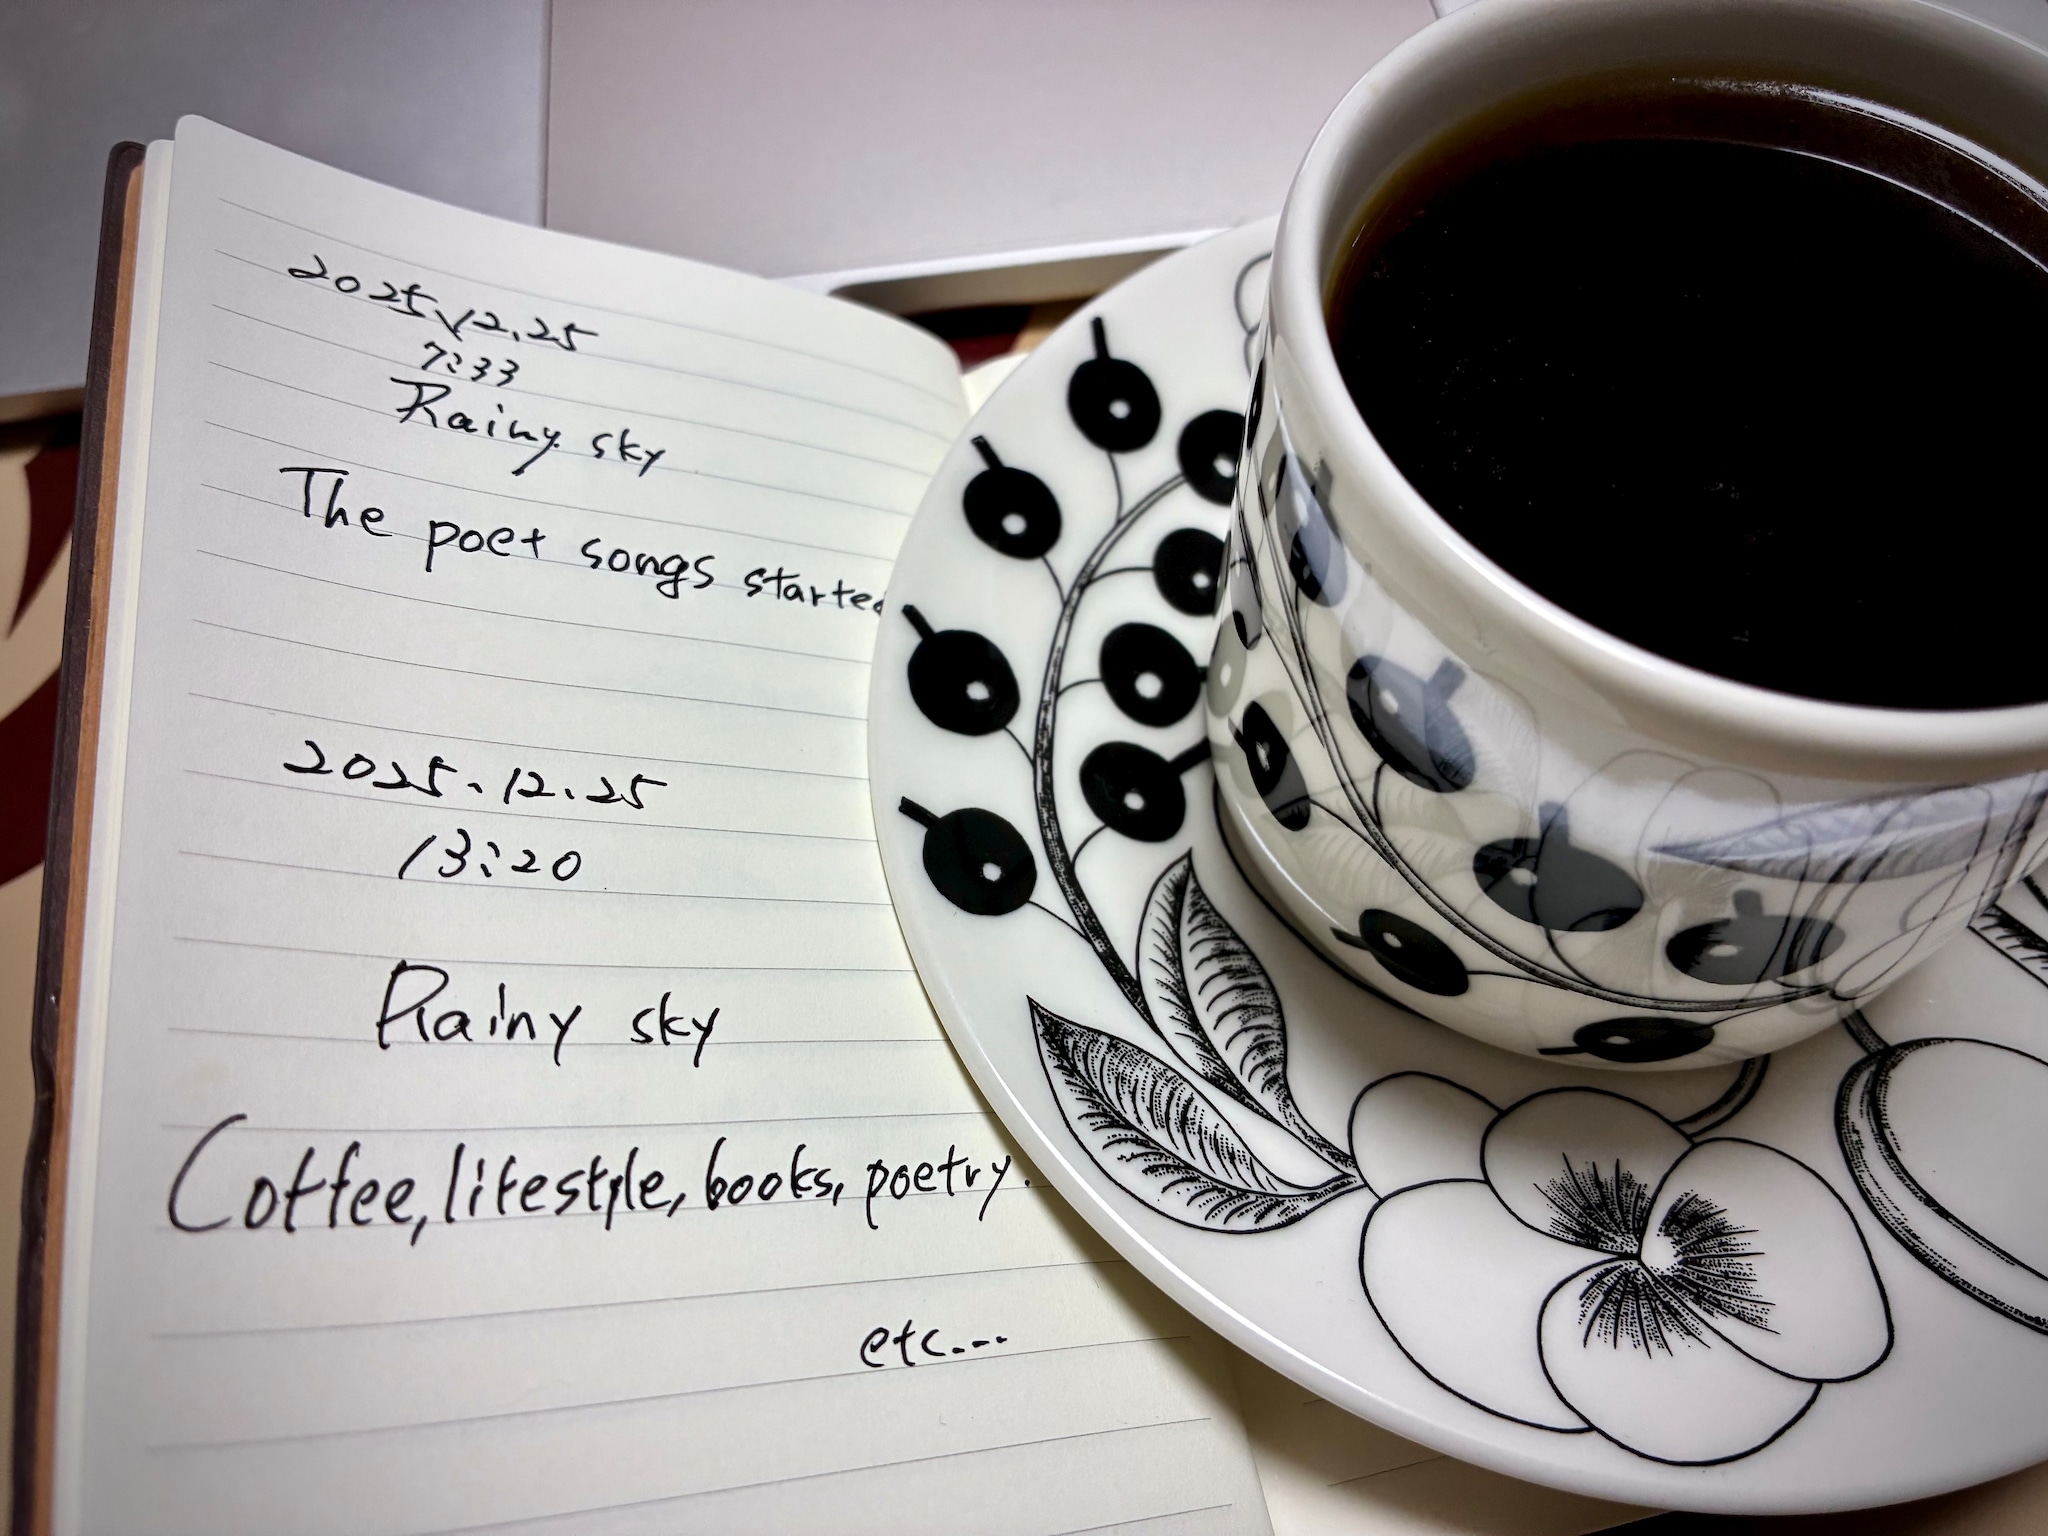 2025.12.25
7:33
Rainy sky
The poet songs started
2025.12.25
13:20
Rainy sky
Coffee, lifestyle, books, poetry.
etc...